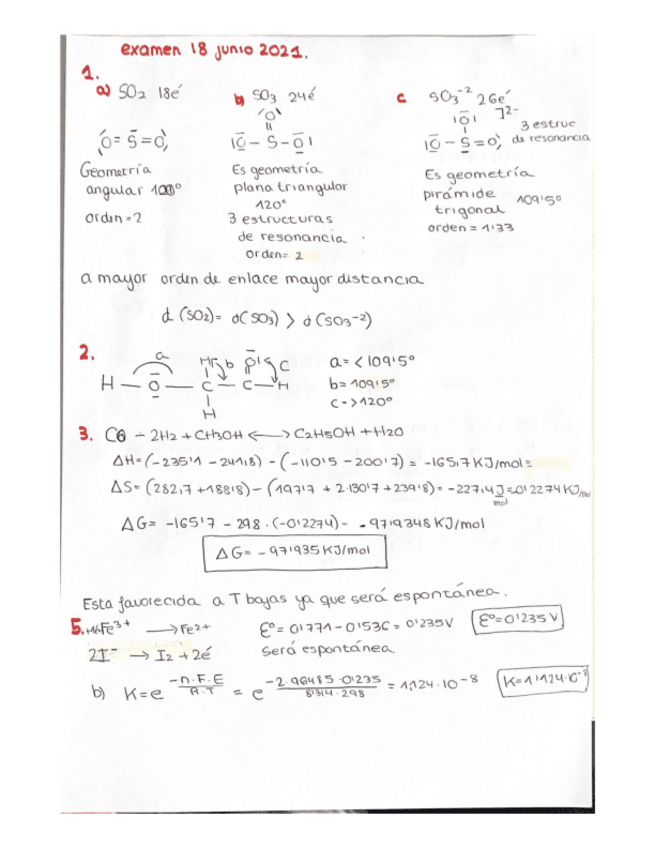 examen 18 junio 2021.
1.
a) SO2 18é
b) SO3 24é
c SO3-2 26é
3 estruc
de resonancia
Geometría
angular 100°
orden = 2
Es geometría
plana triangular
120°
3 estructuras
de resonancia
orden = 2
Es geometría
pirámide
trigonal 109'5°
orden = 1'33
a mayor orden de enlace mayor distancia
d (SO2) = d(SO3) > d (SO3-2)
2.
a = < 109'5°
b = 109'5°
c -> 120°
3. CO - 2H2 + CH3OH <-> C2H5OH + H2O
ΔH = (-235'1 - 241'8) - (-110'5 - 200'7) = -165,7 KJ/mol =
ΔS = (282,7 + 188'8) - (197'7 + 2·130'7 + 239'8) = -227,4 J/mol = 0'2274 KJ/mol
ΔG = -165'7 - 298 · (-0'2274) - -97'9348 KJ/mol
ΔG = -97'935 KJ/mol
Esta favorecida a T bajas ya que será espontánea.
5. Fe3+ → Fe2+ ε° = 0'771 - 0'536 = 0'235 V ε° = 0'235 V
2I- → I2 + 2é será espontánea
b) K = e -n.F.E/R.T = e -2.96485.0'235/8'314.298 = 1,124·10-8 K = 1'124·10-8